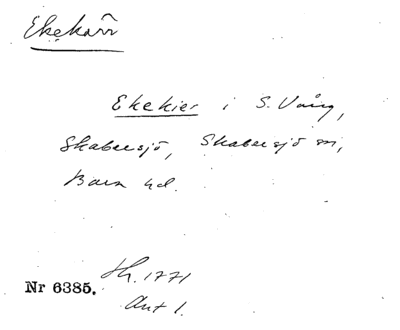 Ekekärr
Ekekier i S. Vång,
Skabersjö, Skabersjö sn,
Bara hd.
Sk. 1771
Nr 6385.
Akt 1.